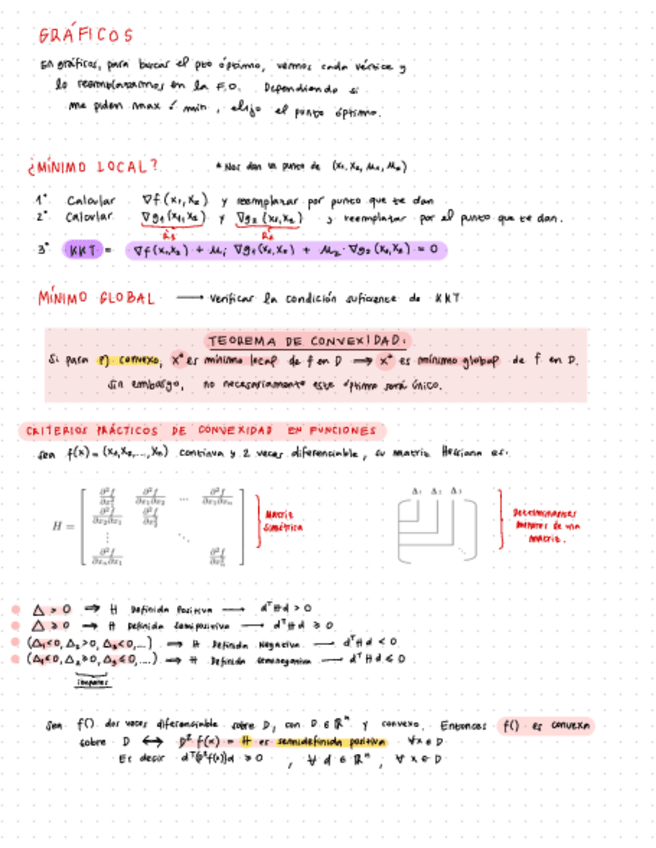 GRÁFICOS
En gráficos, para buscar el pto óptimo, vemos cada vértice y
lo reemplazamos en la F.O. Dependiendo si
me piden max ó min, elijo el punto óptimo.
¿MÍNIMO LOCAL? * Nos dan un punto de (x₁, x₂, μ₁, μ₂)
1° Calcular ∇f(x₁,x₂) y reemplazar por punto que te dan
2° Calcular ∇g₁(x₁,x₂) y ∇g₂(x₁,x₂) y reemplazar por el punto que te dan.
3° KKT = ∇f(x₁,x₂) + μ₁ ∇g₁(x₁,x₂) + μ₂ · ∇g₂(x₁,x₂) = 0
MÍNIMO GLOBAL → verificar la condición suficiente de KKT
TEOREMA DE CONVEXIDAD:
Si para P) convexo, x* es mínimo local de f en D ⟹ x* es mínimo global de f en D.
Sin embargo, no necesariamente este óptimo será único.
CRITERIOS PRÁCTICOS DE CONVEXIDAD EN FUNCIONES
Sea f(x) = (x₁,x₂,...,xₙ) continua y 2 veces diferenciable, su matriz Hessiana es:
Δ₁ Δ₂ Δ₃
H = [ ∂²f/∂x₁² ∂²f/∂x₁∂x₂ ⋯ ∂²f/∂x₁∂xₙ
∂²f/∂x₂∂x₁ ∂²f/∂x₂²
⋮ ⋱
∂²f/∂xₙ∂x₁ ∂²f/∂xₙ² ]
Matriz
Simétrica
Determinantes
menores de una
matriz.
Δ > 0 ⟹ H Definida Positiva → dᵀHd > 0
Δ ≥ 0 ⟹ H Definida Semipositiva → dᵀHd ≥ 0
(Δ₁<0, Δ₂>0, Δ₃<0,...) ⟹ H Definida Negativa → dᵀHd < 0
(Δ₁≤0, Δ₂≥0, Δ₃≤0,...) ⟹ H Definida Seminegativa → dᵀHd ≤ 0
impares
Sea f() dos veces diferenciable sobre D, con D ∈ ℝⁿ y convexo. Entonces f() es convexa
sobre D ⟷ D² f(x) = H es semidefinida positiva ∀x ∈ D
Es decir dᵀ(D²f(x))d ≥ 0 , ∀ d ∈ ℝⁿ , ∀ x ∈ D